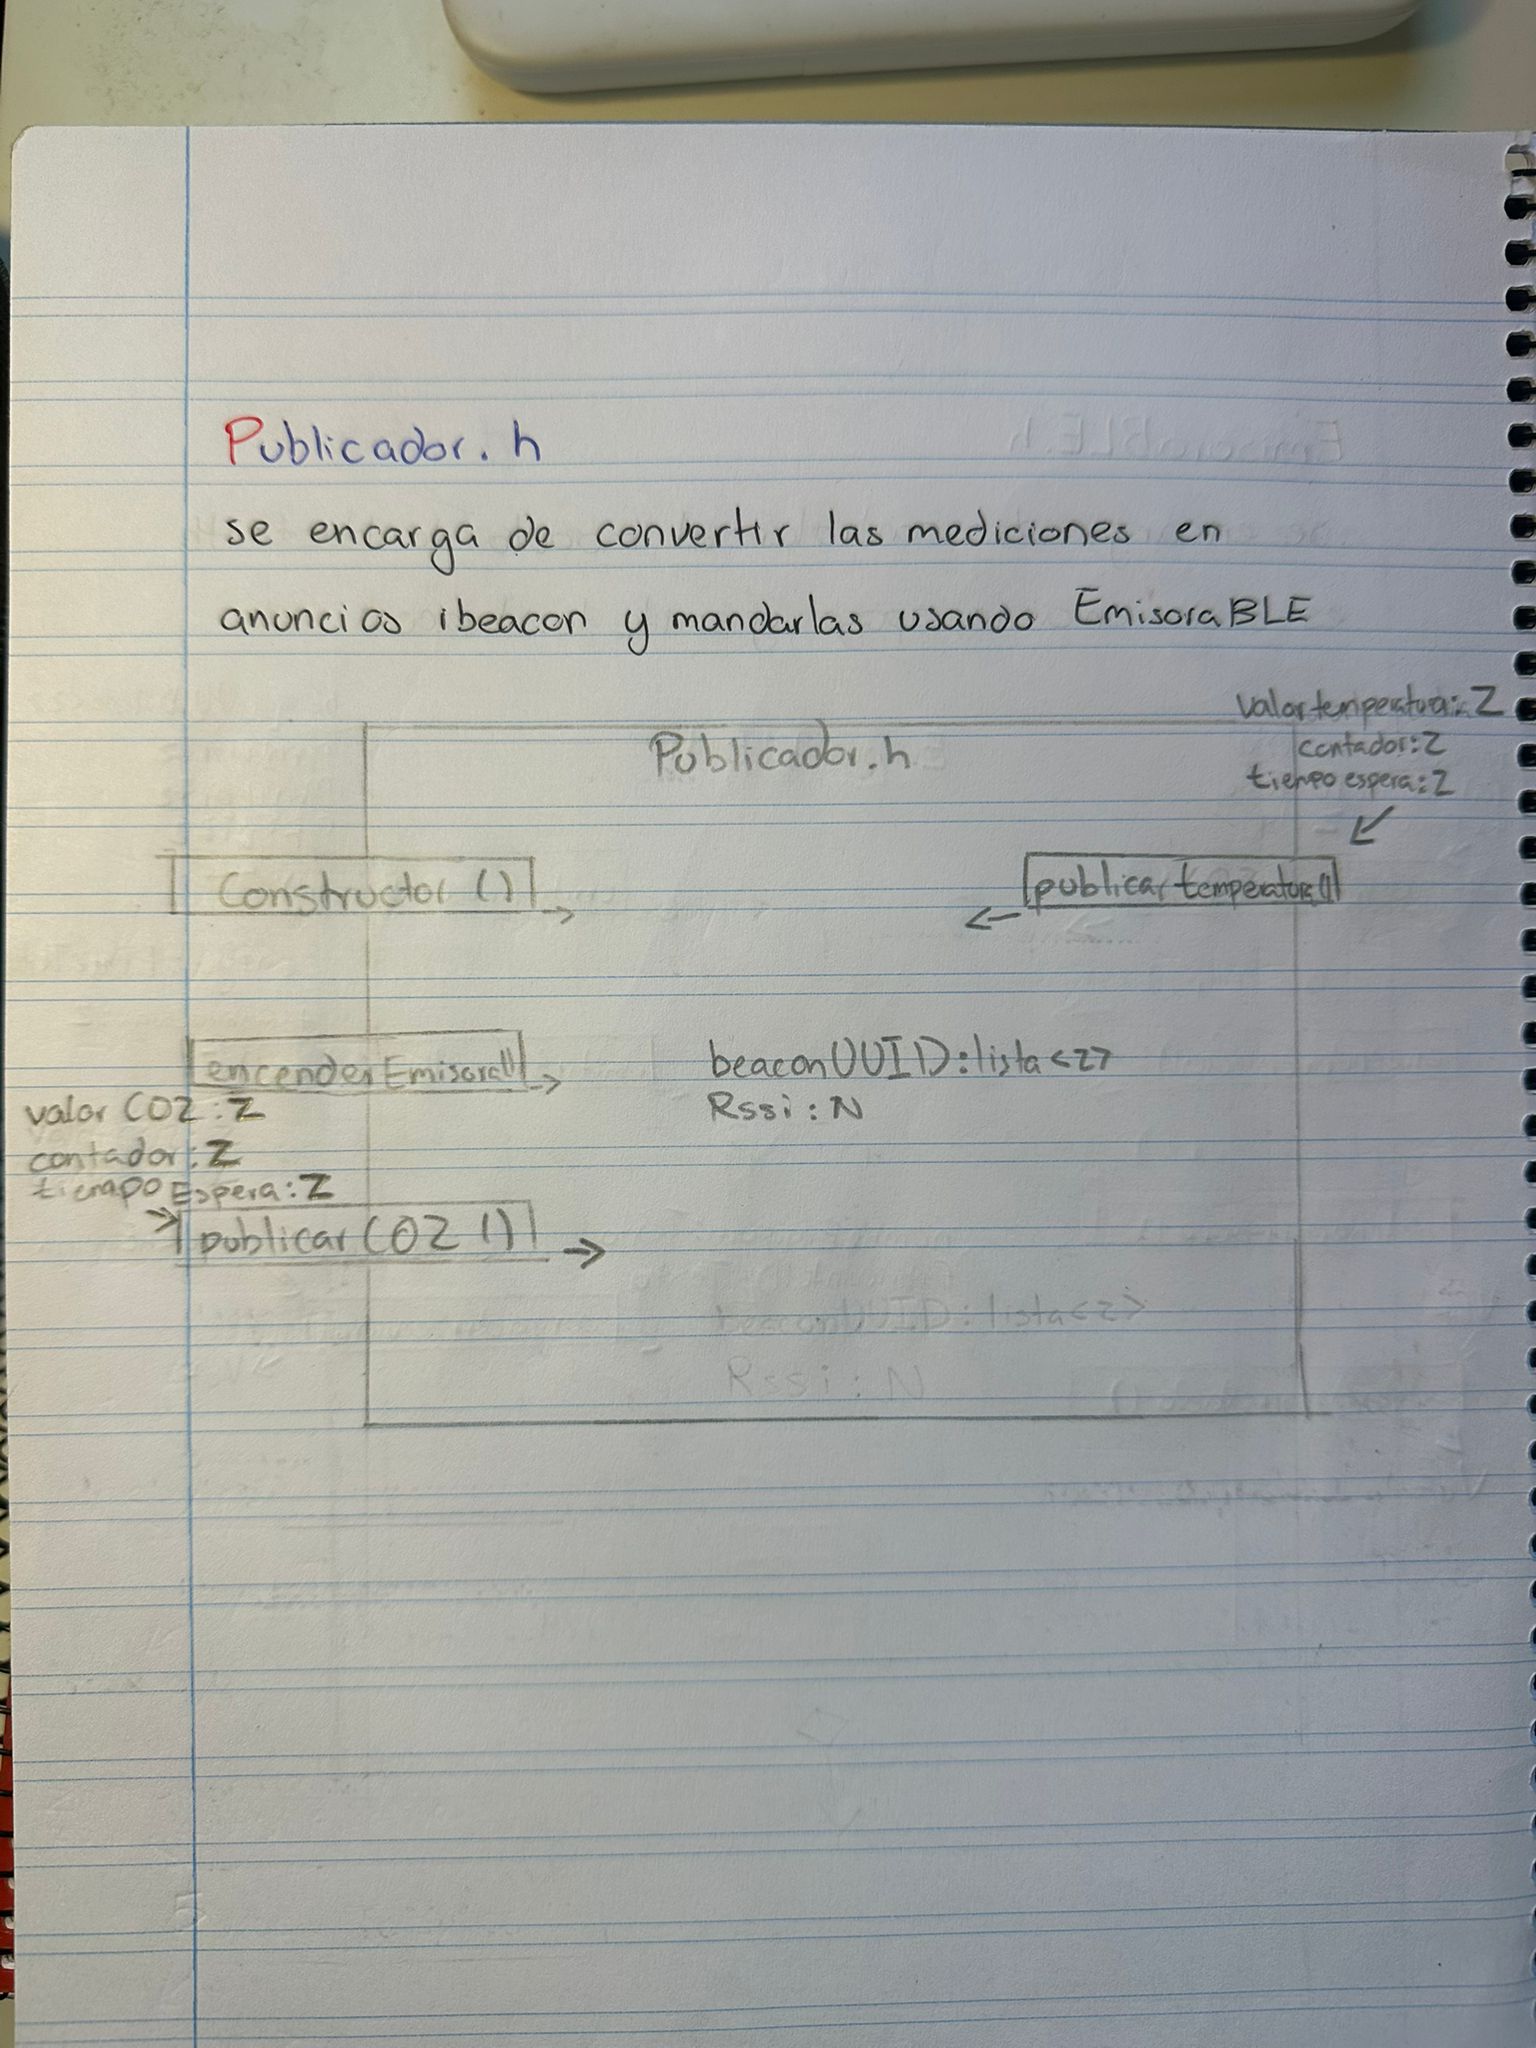 Publicador.h
se encarga de convertir las mediciones en
anuncios ibeacon y mandarlas usando EmisoraBLE
Valor temperatura: Z
contador: Z
tiempo espera: Z
Publicador.h
Constructor ()
publicar temperatura()
encender Emisora()
beaconUUID: lista<Z>
Rssi: N
valor CO2: Z
contador: Z
tiempo Espera: Z
publicar CO2 ()
beaconUUID: lista<Z>
Rssi: N
EmisoraBLE.h